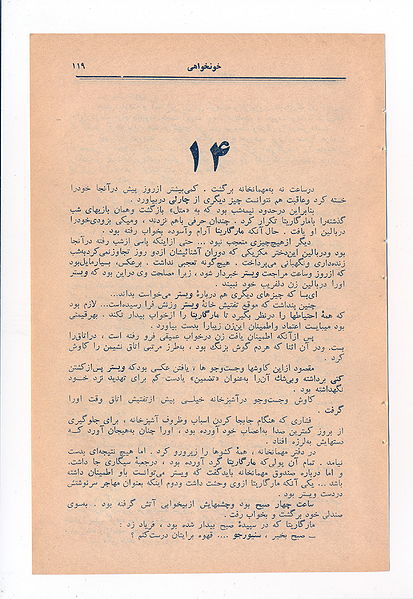 ۱۱۹
خونخواهی
۱۴
درساعت نه به‌مهمانخانه برگشت . کمی‌بیشتر ازروز پیش درآنجا خودرا
خسته کرد وعاقبت هم نتوانست چیز دیگری از چارلی دربیاورد .
بنابراین درحدود نیمه‌شب بود که به «متل» بازگشت وهمان بازیهای شب
گذشته‌را بامارگاریتا تکرار کرد . چندان حرفی باهم نزدند ، ومیکی بزودی‌خودرا
دربالین او یافت . حال آنکه مارگاریتا آرام وآسوده بخواب رفته بود .
دیگر ازهیچ‌چیزی متعجب نبود ... حتی ازاینکه پاسی ازشب رفته درآنجا
بود ودربالین این‌دختر مکزیکی که دوران آشنائیشان ازدو روز تجاوزنمی‌کردبه‌شب
زنده‌داری ونگهبانی می‌پرداخت . هیچ‌گونه تعجبی نداشت . برعکس، بسیارمایل‌بود
که ازروز وساعت مراجعت وبستر خبردار شود ، زیرا مصلحت وی دراین بود که وبستر
اورا دربالین زن دلفریب خود نبیند .
ای‌بسا که چیزهای دیگری هم دربارهٔ وبستر می‌خواست بداند...
چنین پنداشت که موقع تفتیش خانهٔ وبستر وزنش فرا رسیده‌است... لازم بود
که همهٔ احتیاطها را درنظر بگیرد تا مارگاریتا را ازخواب بیدار نکند . بهرقیمتی
بود میبایست اعتماد واطمینان این‌زن زیبارا بدست بیاورد .
پس ازآنکه اطمینان یافت زن درخواب عمیقی فرو رفته است ، دراتاق‌را
بست. ودر آن اثنا که هردم گوش بزنگ بود ، به‌طرز مرتبی اتاق نشیمن را کاوش
کرد .
مقصود ازاین کاوشها وجست‌وجو ها ، یافتن عکسی بودکه وبستر پس‌ازکشتن
کنی برداشته وبی‌شك آن‌را به‌عنوان «تضمین» یادست کم برای تهدید نزد خود
نگهداشته بود .
کاوش وجست‌وجو ، درآشپزخانه خیلی پیش ازتفتیش اتاق وقت اورا
گرفت .
فشاری که هنگام جابجا کردن اسباب وظروف آشپزخانه ، برای جلوگیری
از بروز کمترین صدا به‌اعصاب خود آورده بود ، اورا چنان به‌هیجان آورد کـه
دستهایش به‌لرزه افتاد .
در دفتر مهمانخانه ، همهٔ کشوها را زیرورو کرد . اما هیچ نتیجه‌ای بدست
نیامد . تمام آن پولی‌که مارگاریتا گرد آورده بود ، درجعبهٔ سیگاری جا داشت.
و اما درباره صندوق مهمانخانه بایدگفت که وبستر می‌توانست باو اطمینان داشته
باشد ... یکی آنکه مارگاریتا ازوی وحشت داشت ودوم اینکه بعنوان مهاجر سرنوشتش
دردست وبستر بود .
ساعت چهار صبح بود وچشمهایش ازبیخوابی آتش گرفته بود . به‌سوی
صندلی خود برگشت و بخواب رفت .
مارگاریتا که در سپیدهٔ صبح بیدار شده بود ، فریاد زد :
ــ صبح بخیر ، سنیورجو .... قهوه برایتان درست‌کنم ؟